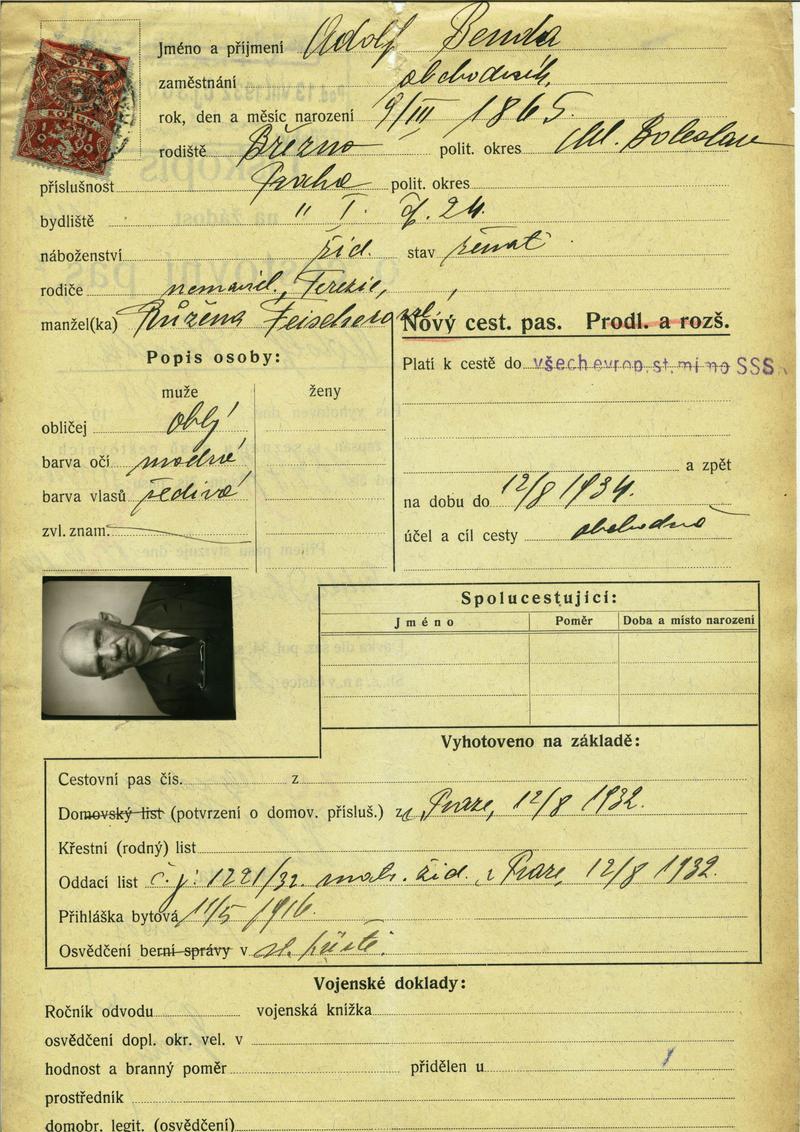 Jméno a příjmení Adolf Benda
zaměstnání obchodník,
rok, den a měsíc narození 9/III 1865.
rodiště Březno polit. okres Ml. Boleslav
příslušnost Praha polit. okres
bydliště " I. č. 24.
náboženství žid. stav ženat
rodiče nemanž., Terezie,
manžel(ka) Růžena
Nový cest. pas. Prodl. a rozš.
Popis osoby:
Platí k cestě do všech evrop. st. mimo SSS.
muže ženy
obličej oblý
barva očí modré
barva vlasů šedivé
zvl. znam.
a zpět
na dobu do 12/8 1934.
účel a cíl cesty obchodně
Spolucestující:
Jméno Poměr Doba a místo narození
Vyhotoveno na základě:
Cestovní pas čís. z
Domovský list (potvrzení o domov. přísluš.) z Praze, 12/8 1932.
Křestní (rodný) list
Oddací list č.j. 1221/32. matr. žid. z Praze, 12/8 1932.
Přihláška bytová 11/5 1916.
Osvědčení berní správy v
Vojenské doklady:
Ročník odvodu vojenská knížka
osvědčení dopl. okr. vel. v
hodnost a branný poměr přidělen u
prostředník
domobr. legit. (osvědčení)